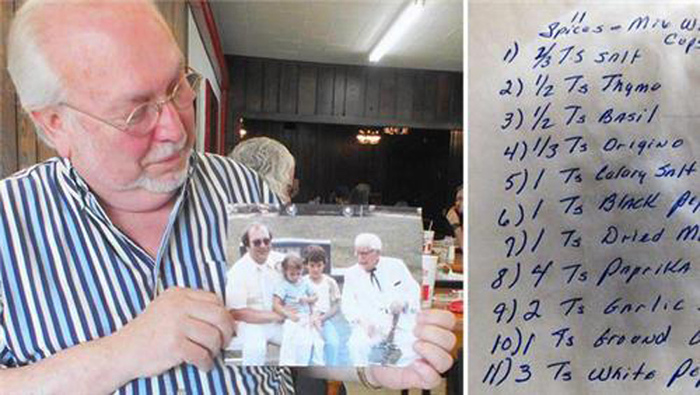 11
Spices - Mix W
Cup
1) 2/3 Ts Salt
2) 1/2 Ts Thyme
3) 1/2 Ts Basil
4) 1/3 Ts Origino
5) 1 Ts Celary Salt
6) 1 Ts Black Pe
7) 1 Ts Dried M
8) 4 Ts Paprika
9) 2 Ts Garlic
10) 1 Ts Ground
11) 3 Ts White Pe